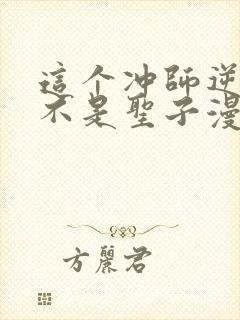 這个冲師逆
不是聖子漫
方麗君